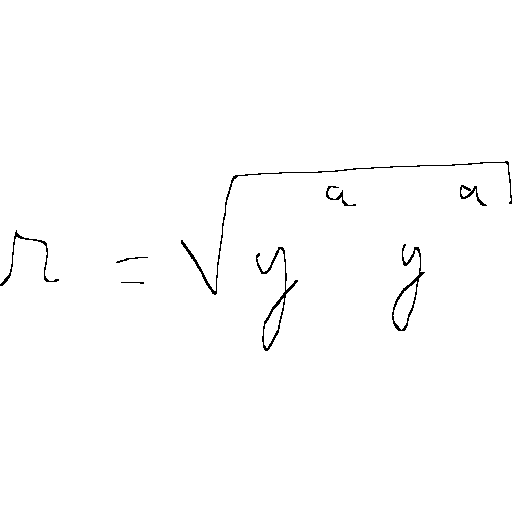 r = √(y^a y^a)